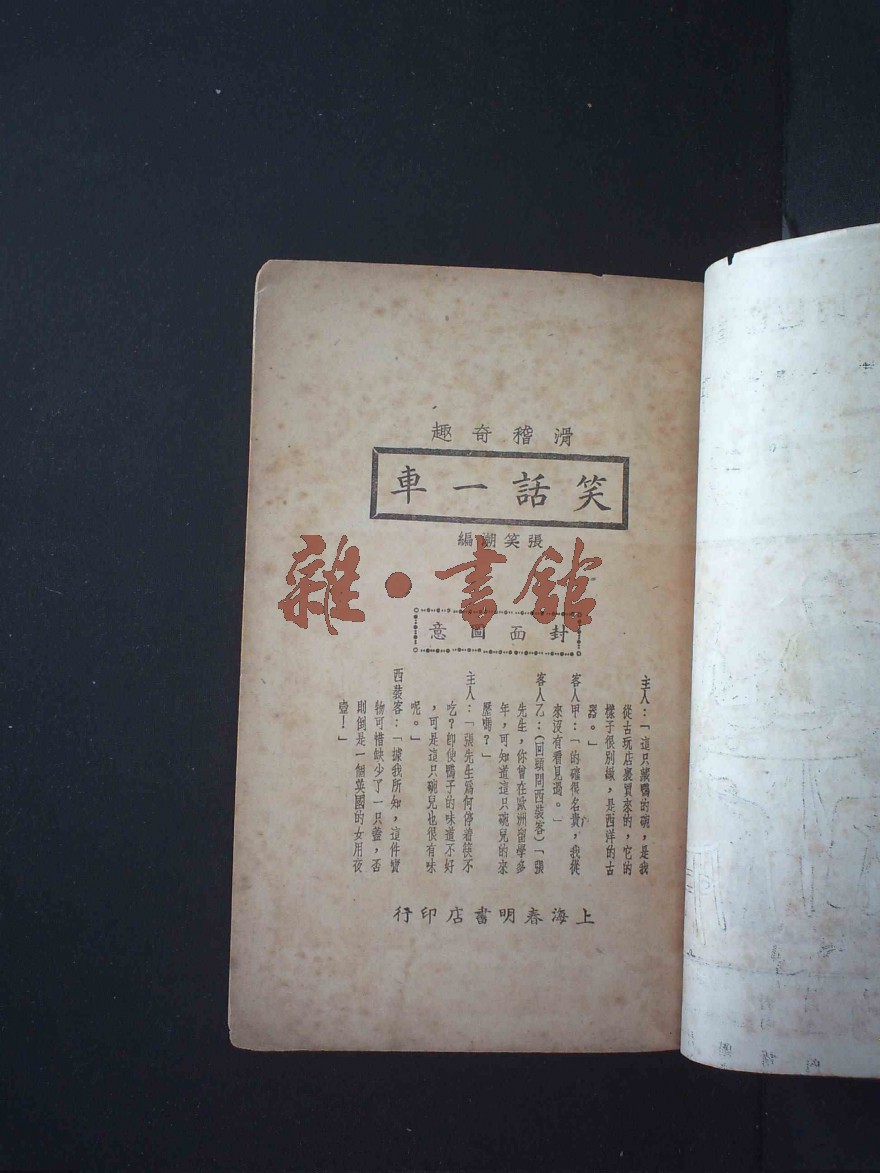 滑稽奇趣
笑話一車
張笑潮編
雜·書館
封面圖意
主人：「這只盛鴨的碗，是我
從古玩店裏買來的，它的
樣子很別緻，是西洋的古
器。」
客人甲：「的確很名貴，我從
來沒有看見過。」
客人乙：（回頭問西裝客）「張
先生，你曾在歐洲留學多
年，可知道這只碗兒的來
歷嗎？」
主人：「張先生爲何停着筷不
吃？即使鴨子的味道不好
，可是這只碗兒也很有味
呢。」
西裝客：「據我所知，這件寶
物可惜缺少了一只蓋，否
則倒是一個英國的女用夜
壺！」
上海春明書店印行